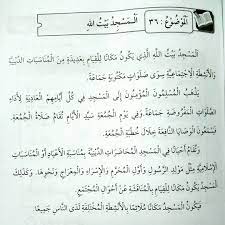 الْمَوْضُوْعُ : ٣٦ اَلْمَسْجِدُ بَيْتُ اللهِ
اَلْمَسْجِدُ بَيْتُ اللهِ الَّذِي يَكُونُ مَكَانًا لِلْقِيَامِ بِعَدِيدَةٍ مِنَ الْمُنَاسَبَاتِ الدِّيْنِيَّةِ
وَالْأَنْشِطَةِ الْاِجْتِمَاعِيَّةِ سِوَى صَلَوَاتٍ مَكْتُوبَةٍ جَمَاعَةً.
يَذْهَبُ الْمُسْلِمُونَ الْمُؤْمِنُونَ إِلَى الْمَسْجِدِ فِي كُلِّ أَيَّامِهِمُ الْعَادِيَةِ لِأَدَاءِ
الصَّلَوَاتِ الْمَفْرُوضَةِ جَمَاعَةً. وَفِي يَوْمِ الْجُمُعَةِ سَيِّدِ الْأَيَّامِ تُقَامُ صَلَاةُ الْجُمُعَةِ.
يَسْتَمِعُونَ الْوَصَايَا النَّافِعَةَ خِلَالَ خُطْبَةِ الْجُمُعَةِ.
وَتُقَامُ أَحْيَانًا فِي الْمَسْجِدِ الْمُحَاضَرَاتُ الدِّيْنِيَّةُ بِمُنَاسَبَةِ الْأَعْيَادِ أَوِ الْمُنَاسَبَاتِ
الْإِسْلَامِيَّةِ مِثْلَ مَوْلِدِ الرَّسُولِ وَأَوَّلِ الْمُحَرَّمِ وَالْإِسْرَاءِ وَالْمِعْرَاجِ وَنَحْوِهَا. وَكَذٰلِكَ
الْمَسْجِدُ يَكُونُ مَكَانًا لِلْقِيَامِ بِالْمُنَاقَشَةِ عَنْ أَحْوَالِ الْمُجْتَمَعِ.
فَيَكُونُ الْمَسْجِدُ مَكَانًا مُلَائِمًا بِالْأَنْشِطَةِ الْمُخْتَلِفَةِ لَدَى النَّاسِ جَمِيعًا.